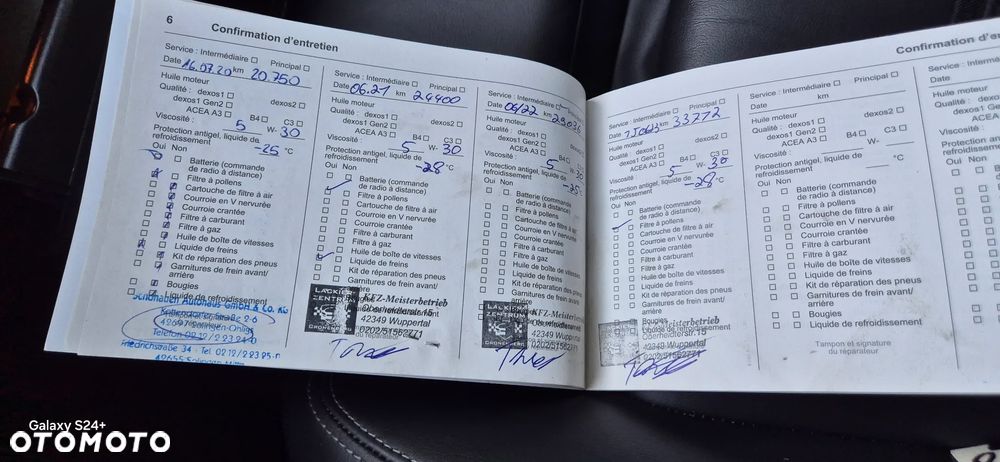 6 Confirmation d'entretien
Service : Intermédiaire Principal
Date 16.07.20 km 20.750
Huile moteur
Qualité : dexos1
dexos1 Gen2 dexos2
ACEA A3 B4 C3
Viscosité : 5 W- 30
Protection antigel, liquide de
refroidissement -25 °C
Oui Non
Batterie (commande
de radio à distance)
Filtre à pollens
Cartouche de filtre à air
Courroie en V nervurée
Courroie crantée
Filtre à carburant
Filtre à gaz
Huile de boîte de vitesses
Liquide de freins
Kit de réparation des pneus
Garnitures de frein avant/
arrière
Bougies
Liquide de refroidissement
Schönauen Autohaus GmbH & Co. KG
42697 Solingen-Ohligs
Telefon 02 12 /
Friedrichstraße 34 · Tel. 02 12 /
Service : Intermédiaire Principal
Date 06.21 km 24400
Huile moteur
Qualité : dexos1
dexos1 Gen2 dexos2
ACEA A3 B4 C3
Viscosité : 5 W- 30
Protection antigel, liquide de
refroidissement -28 °C
Oui Non
Batterie (commande
de radio à distance)
Filtre à pollens
Cartouche de filtre à air
Courroie en V nervurée
Courroie crantée
Filtre à carburant
Filtre à gaz
Huile de boîte de vitesses
Liquide de freins
Kit de réparation des pneus
Garnitures de frein avant/
arrière
LACKIER
ZENTRUM
CRONENBERG
KFZ-Meisterbetrieb
Oberheidterstr. 15
42349 Wuppertal
0202/51562771
Service : Intermédiaire
Date 06/22 km 29036
Huile moteur
Qualité : dexos1
dexos1 Gen2
ACEA A3 B4
Viscosité : 5 W- 30
Protection antigel, liquide de
refroidissement -25
Oui Non
Batterie (commande
de radio à distance)
Filtre à pollens
Cartouche de filtre à air
Courroie en V nervurée
Courroie crantée
Filtre à carburant
Filtre à gaz
Huile de boîte de vitesses
Liquide de freins
Kit de réparation des pneus
Garnitures de frein avant/
arrière
KFZ-Meisterbetrieb
42349 Wuppertal
Confirmation d'e
Service : Intermédiaire Principal
Date km 33772
Huile moteur
Qualité : dexos1
dexos1 Gen2 dexos2
ACEA A3 B4 C3
Viscosité : 5 W- 30
Protection antigel, liquide de
refroidissement -28 °C
Oui Non
Batterie (commande
de radio à distance)
Filtre à pollens
Cartouche de filtre à air
Courroie en V nervurée
Courroie crantée
Filtre à carburant
Filtre à gaz
Huile de boîte de vitesses
Liquide de freins
Kit de réparation des pneus
Garnitures de frein avant/
arrière
Bougies
Liquide de refroidissement
Meisterbetrieb
42349 Wuppertal
0202/51562771
Service : Intermédiaire Principal
Date km
Huile moteur
Qualité : dexos1
dexos1 Gen2 dexos2
ACEA A3 B4 C3
Viscosité : W-
Protection antigel, liquide de
refroidissement °C
Oui Non
Batterie (commande
de radio à distance)
Filtre à pollens
Cartouche de filtre à air
Courroie en V nervurée
Courroie crantée
Filtre à carburant
Filtre à gaz
Huile de boîte de vitesses
Liquide de freins
Kit de réparation des pneus
Garnitures de frein avant/
arrière
Bougies
Liquide de refroidissement
Tampon et signature
du réparateur
Galaxy S24+
OTOMOTO